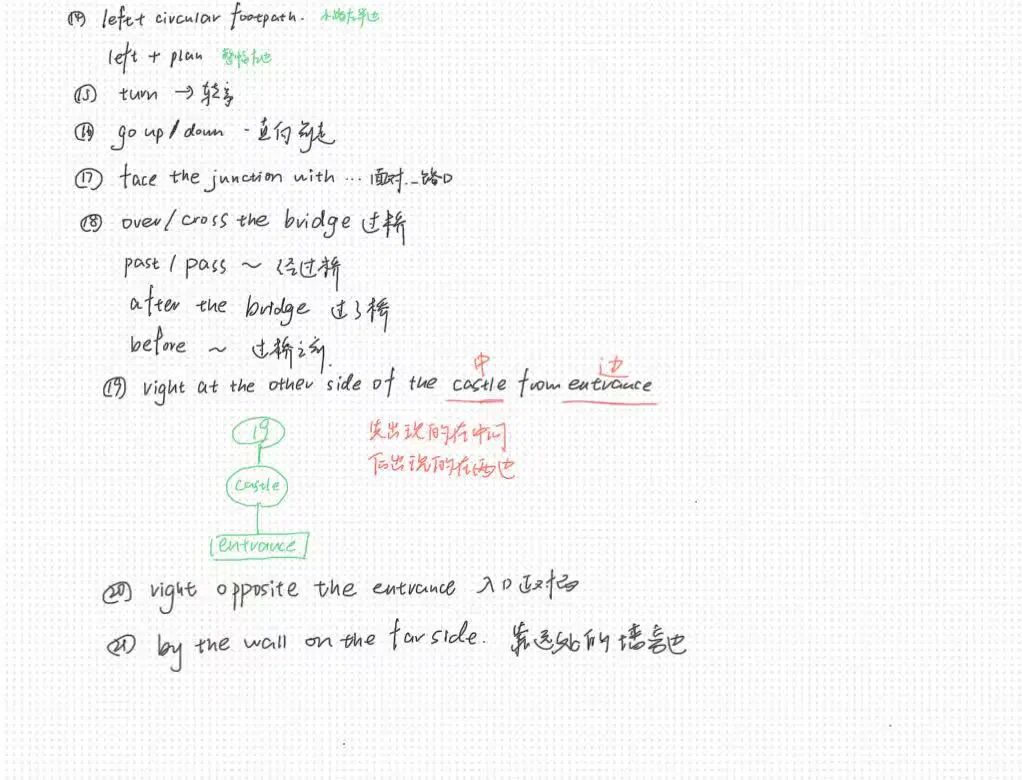 ⑭ left + circular footpath. 小路左半边
left + plan 整幅左边
⑮ turn → 转弯
⑯ go up / down - 直向前走
⑰ face the junction with ... 面对...路口
⑱ over / cross the bridge 过桥
past / pass ~ 经过桥
after the bridge 过了桥
before ~ 过桥之前.
中 边
⑲ right at the other side of the castle from entrance
19 先出现的在中间
后出现的在两边
castle
entrance
⑳ right opposite the entrance 入口正对面
㉑ by the wall on the far side. 靠远处的墙旁边